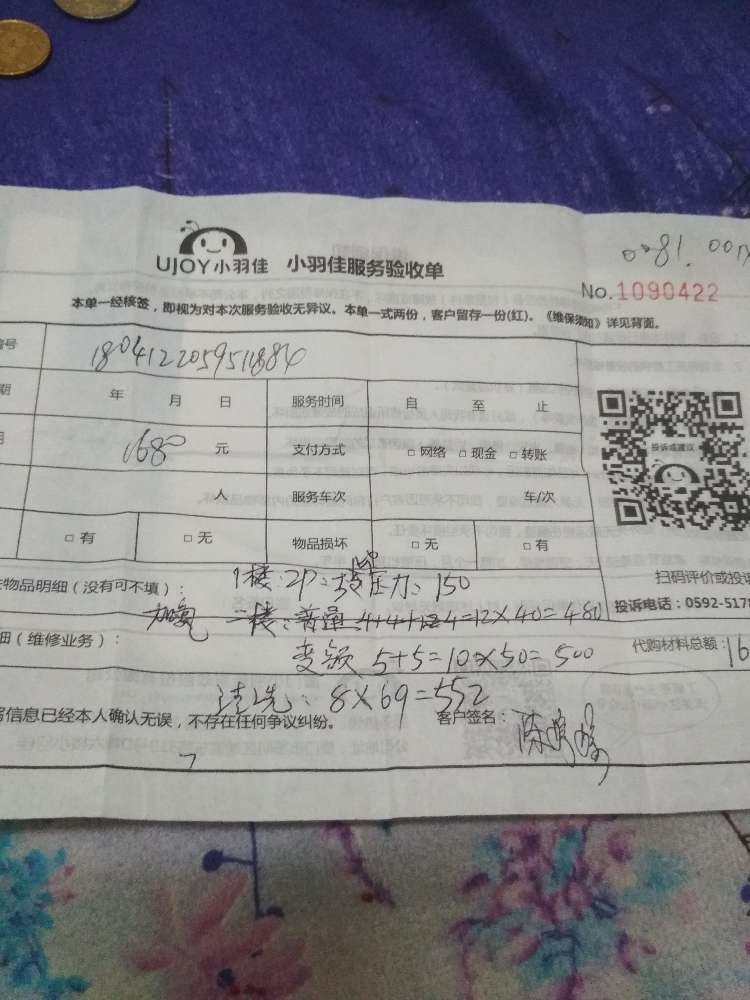 UJOY小羽佳 小羽佳服务验收单
No.1090422
本单一经核签，即视为对本次服务验收无异议。本单一式两份，客户留存一份(红)。《维保须知》详见背面。
编号 1804122059511884
期 年 月 日 服务时间 自 至 止
1680 元 支付方式 □ 网络 □ 现金 □ 转账
人 服务车次 车/次
□ 有 □ 无 物品损坏 □ 无 □ 有
投诉或建议
扫码评价或投诉
投诉电话：0592-5178
物品明细（没有可不填）： 1楼：2P：压力：150
加氟 二楼：普通 4+4+4=12×40=480
细（维修业务）： 变频 5+5=10×50=500
代购材料总额：16
清洗：8×69=552
写信息已经本人确认无误，不存在任何争议纠纷。 客户签名：